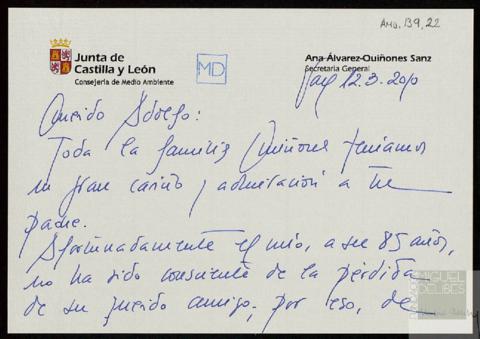 AMD, 139, 22
Junta de
Castilla y León
Consejería de Medio Ambiente
MD
Ana Álvarez-Quiñones Sanz
Secretaria General
12.3.2010
Querido Adolfo:
Toda la familia Quiñones teníamos
un gran cariño y admiración a tu
padre.
Afortunadamente el mío, a sus 85 años,
no ha sido consciente de la pérdida
de su querido amigo; por eso, de
FUNDACIÓN
MIGUEL
DELIBES